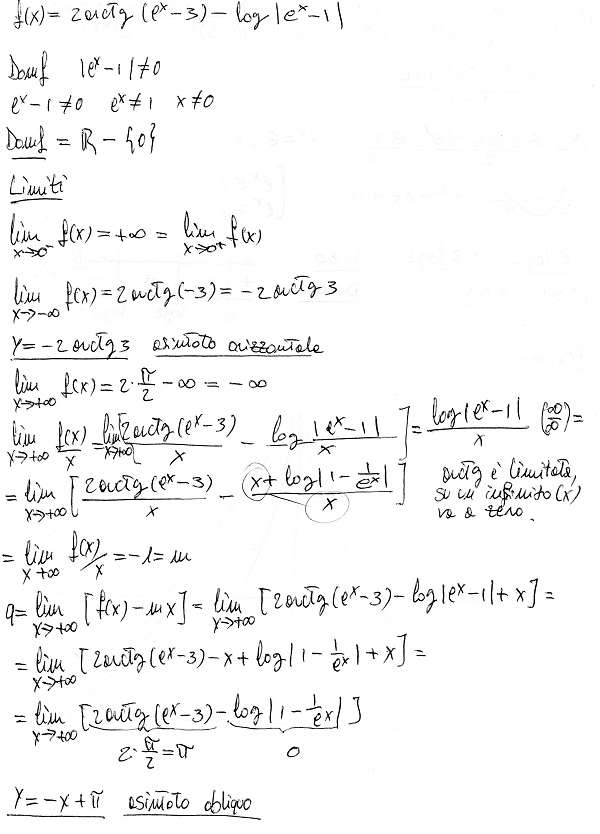 f(x) = 2 arctg (eˣ - 3) - log |eˣ - 1|
Domf |eˣ - 1| ≠ 0
eˣ - 1 ≠ 0 eˣ ≠ 1 x ≠ 0
Domf = ℝ - {0}
Limiti
lim x→0⁻ f(x) = +∞ = lim x→0⁺ f(x)
lim x→-∞ f(x) = 2 arctg(-3) = -2 arctg 3
y = -2 arctg 3 asintoto orizzontale
lim x→+∞ f(x) = 2·π/2 - ∞ = -∞
lim x→+∞ f(x)/x = lim x→+∞ [2 arctg(eˣ - 3)/x - log |eˣ - 1|/x] = log |eˣ - 1|/x (∞/∞) =
= lim x→+∞ [2 arctg(eˣ - 3)/x - (x + log |1 - 1/eˣ|)/x] arctg è limitata,
su un infinito (x)
va a zero.
= lim x→+∞ f(x)/x = -1 = m
q = lim x→+∞ [f(x) - mx] = lim x→+∞ [2 arctg(eˣ - 3) - log |eˣ - 1| + x] =
= lim x→+∞ [2 arctg(eˣ - 3) - x + log |1 - 1/eˣ| + x] =
= lim x→+∞ [2 arctg(eˣ - 3) - log |1 - 1/eˣ|]
2·π/2 = π 0
y = -x + π asintoto obliquo